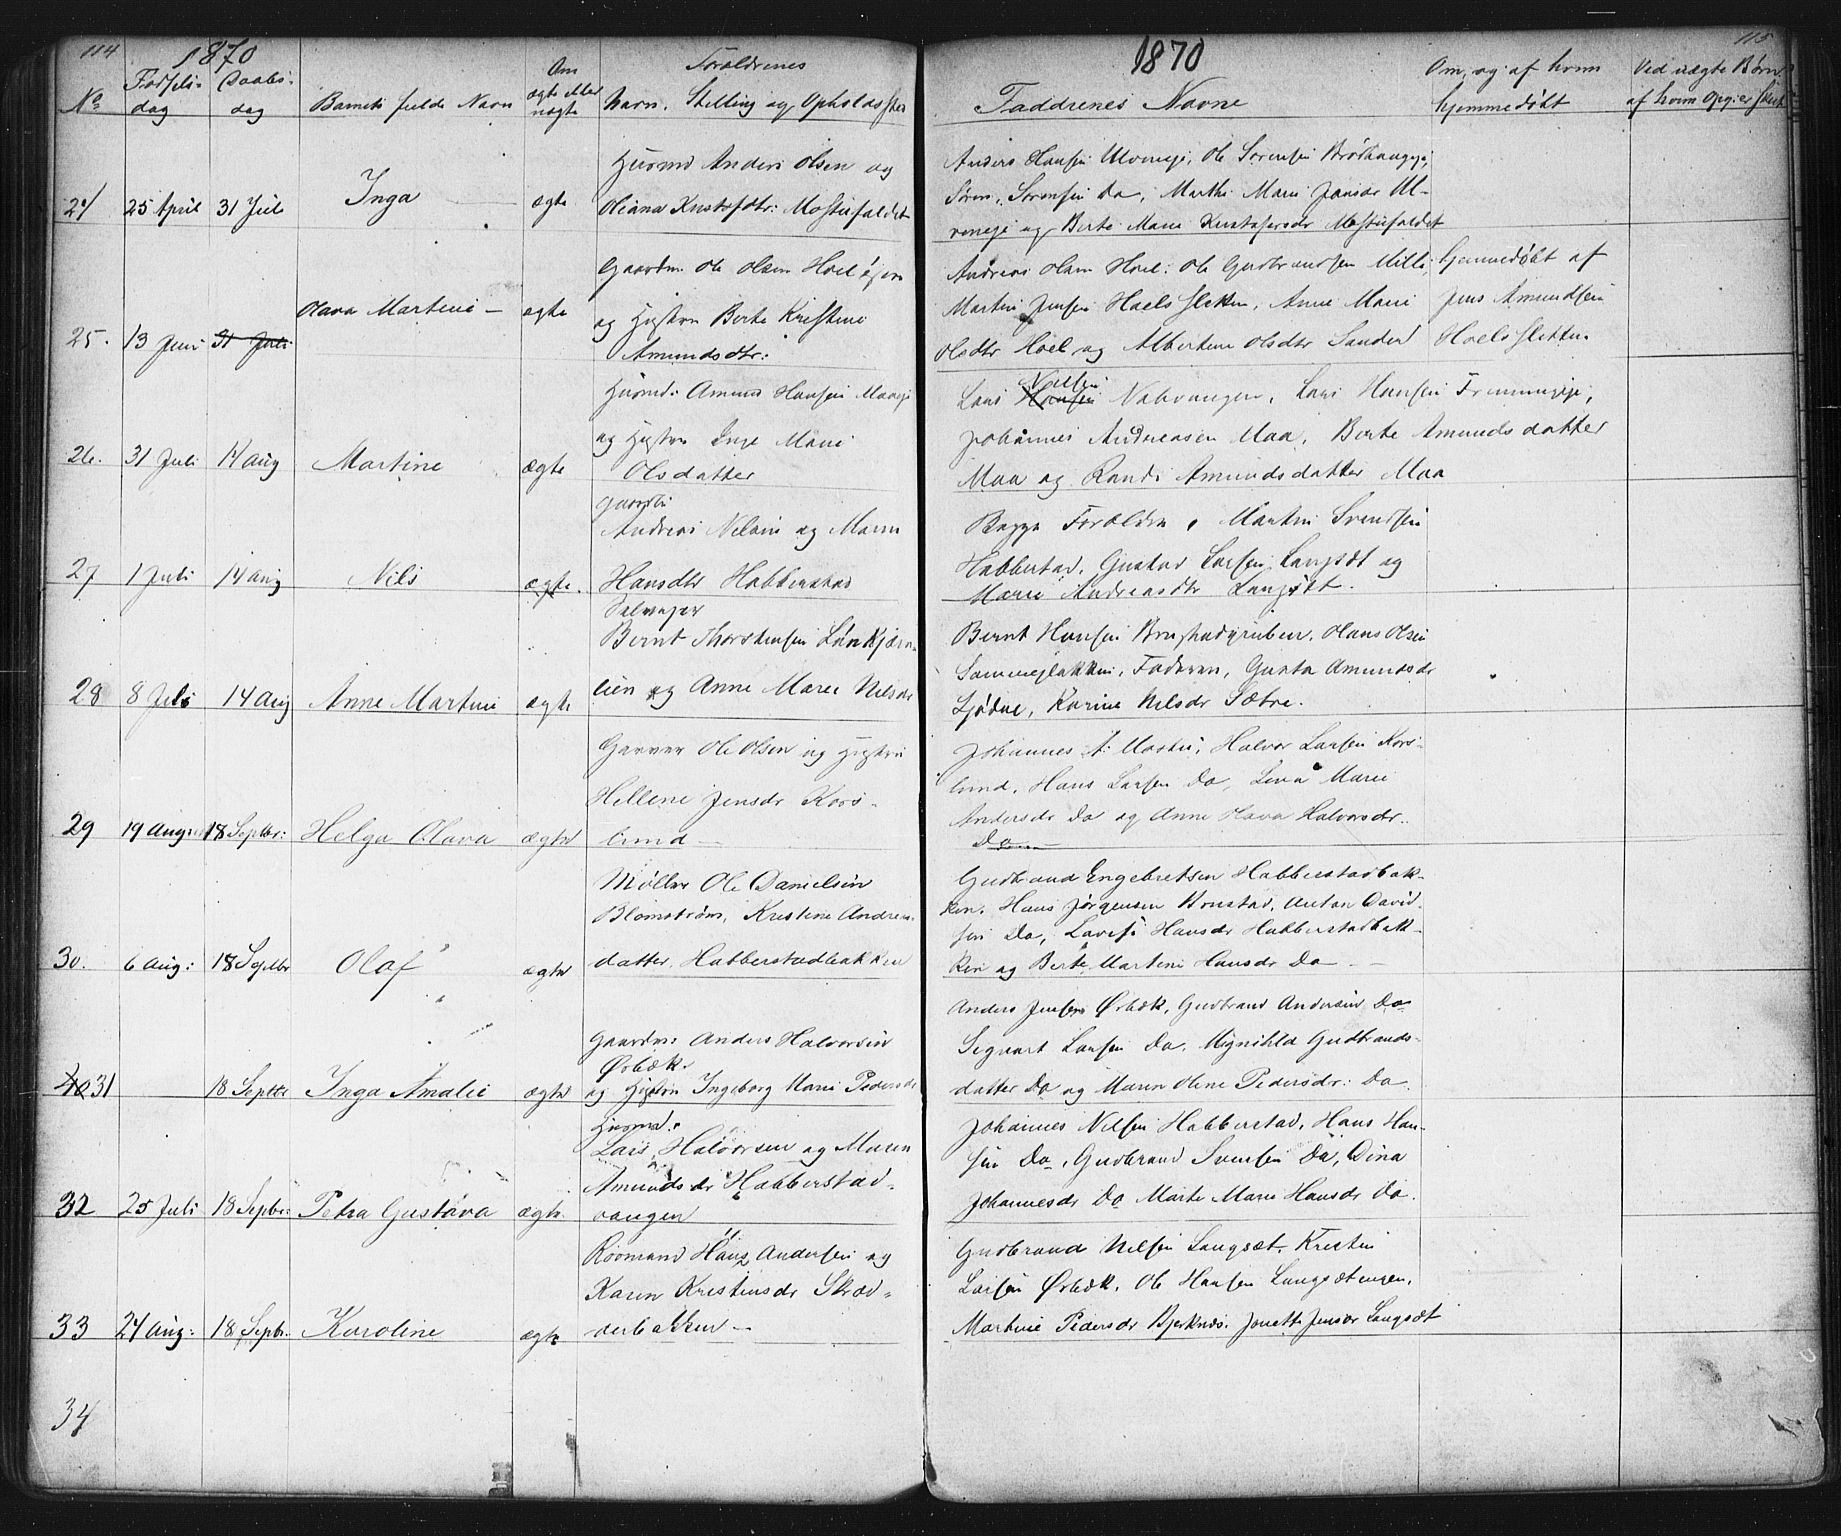 114
1870
No
Fødsels-
dag
Daabs-
dag
Barnets fulde Navn
Om
ægte eller
uægte
Forældrenes
Navn, Stilling og Opholdssted
24 25 April 31 Juli Inga ægte
Husmd Anders Olsen og
Oliana Kustafdtr: Mostufaldet
25. 13 Juni 31 Juli Olava Martine — ægte
Gaardm. Ole Olsen Hoel
og Hustru Berte Kristine
Amundsdtr:
26. 31 Juli 14 Aug Martine ægte
Husmd: Amund Hansen
og Hustru Inge Marie
Olsdatter
27 1 Juli 14 Aug Nils ægte.
Gaardbr
Andreas Nilsen og Maren
Hansdtr Habberstad
28 8 Juli 14 Aug Anne Martine ægte
Selveier
Bernt Thorstensen Lønkjærn-
lien og Anne Marie Nilsdr
29 19 August 18 Septbr: Helga Olava ægte
Garver Ole Olsen og Hustru
Hellene Jensdr Kors-
lund —
30. 6 Aug: 18 Septbr Olaf ægte
Møller Ole Danielsen
Blomstrøm, Kristine Andreas-
datter Habberstadbakken
40 31 18 Septbr Inga Amalie ægte
Gaardm: Anders Halvorsen
Ørbæk
og Hustru Ingeborg Marie Pedersdr
32 25 Juli 18 Septbr: Petra Gustava ægte
Husmd:
Lars Halvorsen og Maren
Amundsdr Habberstad-
vangen
33 24 Aug: 18 Septbr. Karoline ægte
Rømand Hans Andersen og
Karen Kristensdr Skred-
derbakken —
34
1870
115
Faddrenes Navne
Om, og af hvem
hjemmedøbt
Ved uægte Børn
af hvem Opgivelsen skeet
Anders Hansen Ulvineje, Ole Sørensen Brøshaugeje,
Søren Sørensen Do, Marthe Marie Jansdr Ul-
vineje og Berte Marie Kustafersdr Mostufaldet
Andreas Olsen Hoel: Ole Gudbrandsen Mille,
Martin Jensen Hoelssletten, Anne Marie
Olsdtr Hoel og Albertine Olsdtr Sander
hjemmedøbt af
Jens Amundsen
Hoelssletten
Nilsen
Lars Hansen Nabvangen, Lars Hansen
Johannes Andreasen Maa, Berte Amundsdatter
Maa og Randi Amundsdatter Maa
Begge Forældre, Martin Svendsen
Habberstad, Gustav Larsen Langsæt og
Marie Andreasdtr Langsæt.
Bernt Hansen Brustadgruben, Hans Olsen
Faderen, Gusta Amundsdr
Sjødne, Karine Nilsdr Sætre.
Johannes A: Mostu, Halvor Larsen Kors-
lund, Hans Larsen Do, Lina Marie
Andersdr Do og Anne Hava Halvorsdr.
Do —
Gudbrand Engebretsen Habberstadbak-
ken, Hans Jørgensen Brustad, Anton David-
sen Do, Lovise Hansdr Habberstadbak-
ken og Berte Martine Hansdr Do —
Anders Jensen Ørbæk, Gudbrand Andersen Do
Segvart Larsen Do, Mignilda Gudbrands-
datter Do og Maren Oline Pedersdr: Do
Johannes Nilsen Habberstad, Hans Han-
sen Do, Gudbrand Svensen Do, Dina
Johannesdr Do Marte Marie Hansdr Do.
Gudbrand Nilsen Langsæt, Kristen
Larsen Ørbæk, Ole Hansen Langsætengen,
Martine Pedersdr Bjerknes, Jonette Jensdr Langsæt